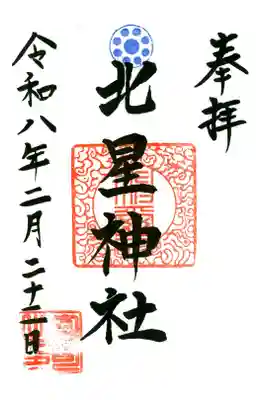 奉拝
北星神社
令和八年二月二十二日